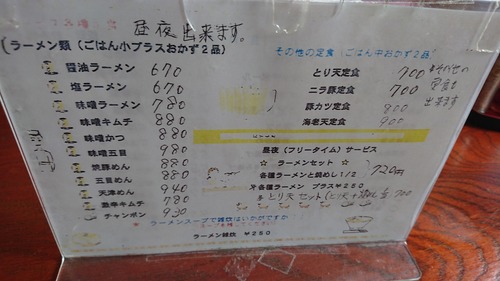 昼夜出来ます。
(ラーメン類(ごはん小プラスおかず2品)
醤油ラーメン 670
塩ラーメン 670
味噌ラーメン 780
味噌キムチ 880
味噌かつ 880
味噌五目 980
焼豚めん 880
五目めん 880
天津めん 940
激辛キムチ 780
チャンポン 930
その他の定食(ごはん中おかず2品)
とり天定食 700
ニラ豚定食 700
豚カツ定食 800
海老天定食 900
出来ます
昼夜(フリータイム)サービス
☆ ラーメンセット ☆
各種ラーメンと焼めし1/2 720円
各種ラーメン プラス¥250
とり天セット
700
ラーメンスープで雑炊はいかがですか
ラーメン雑炊 ¥250